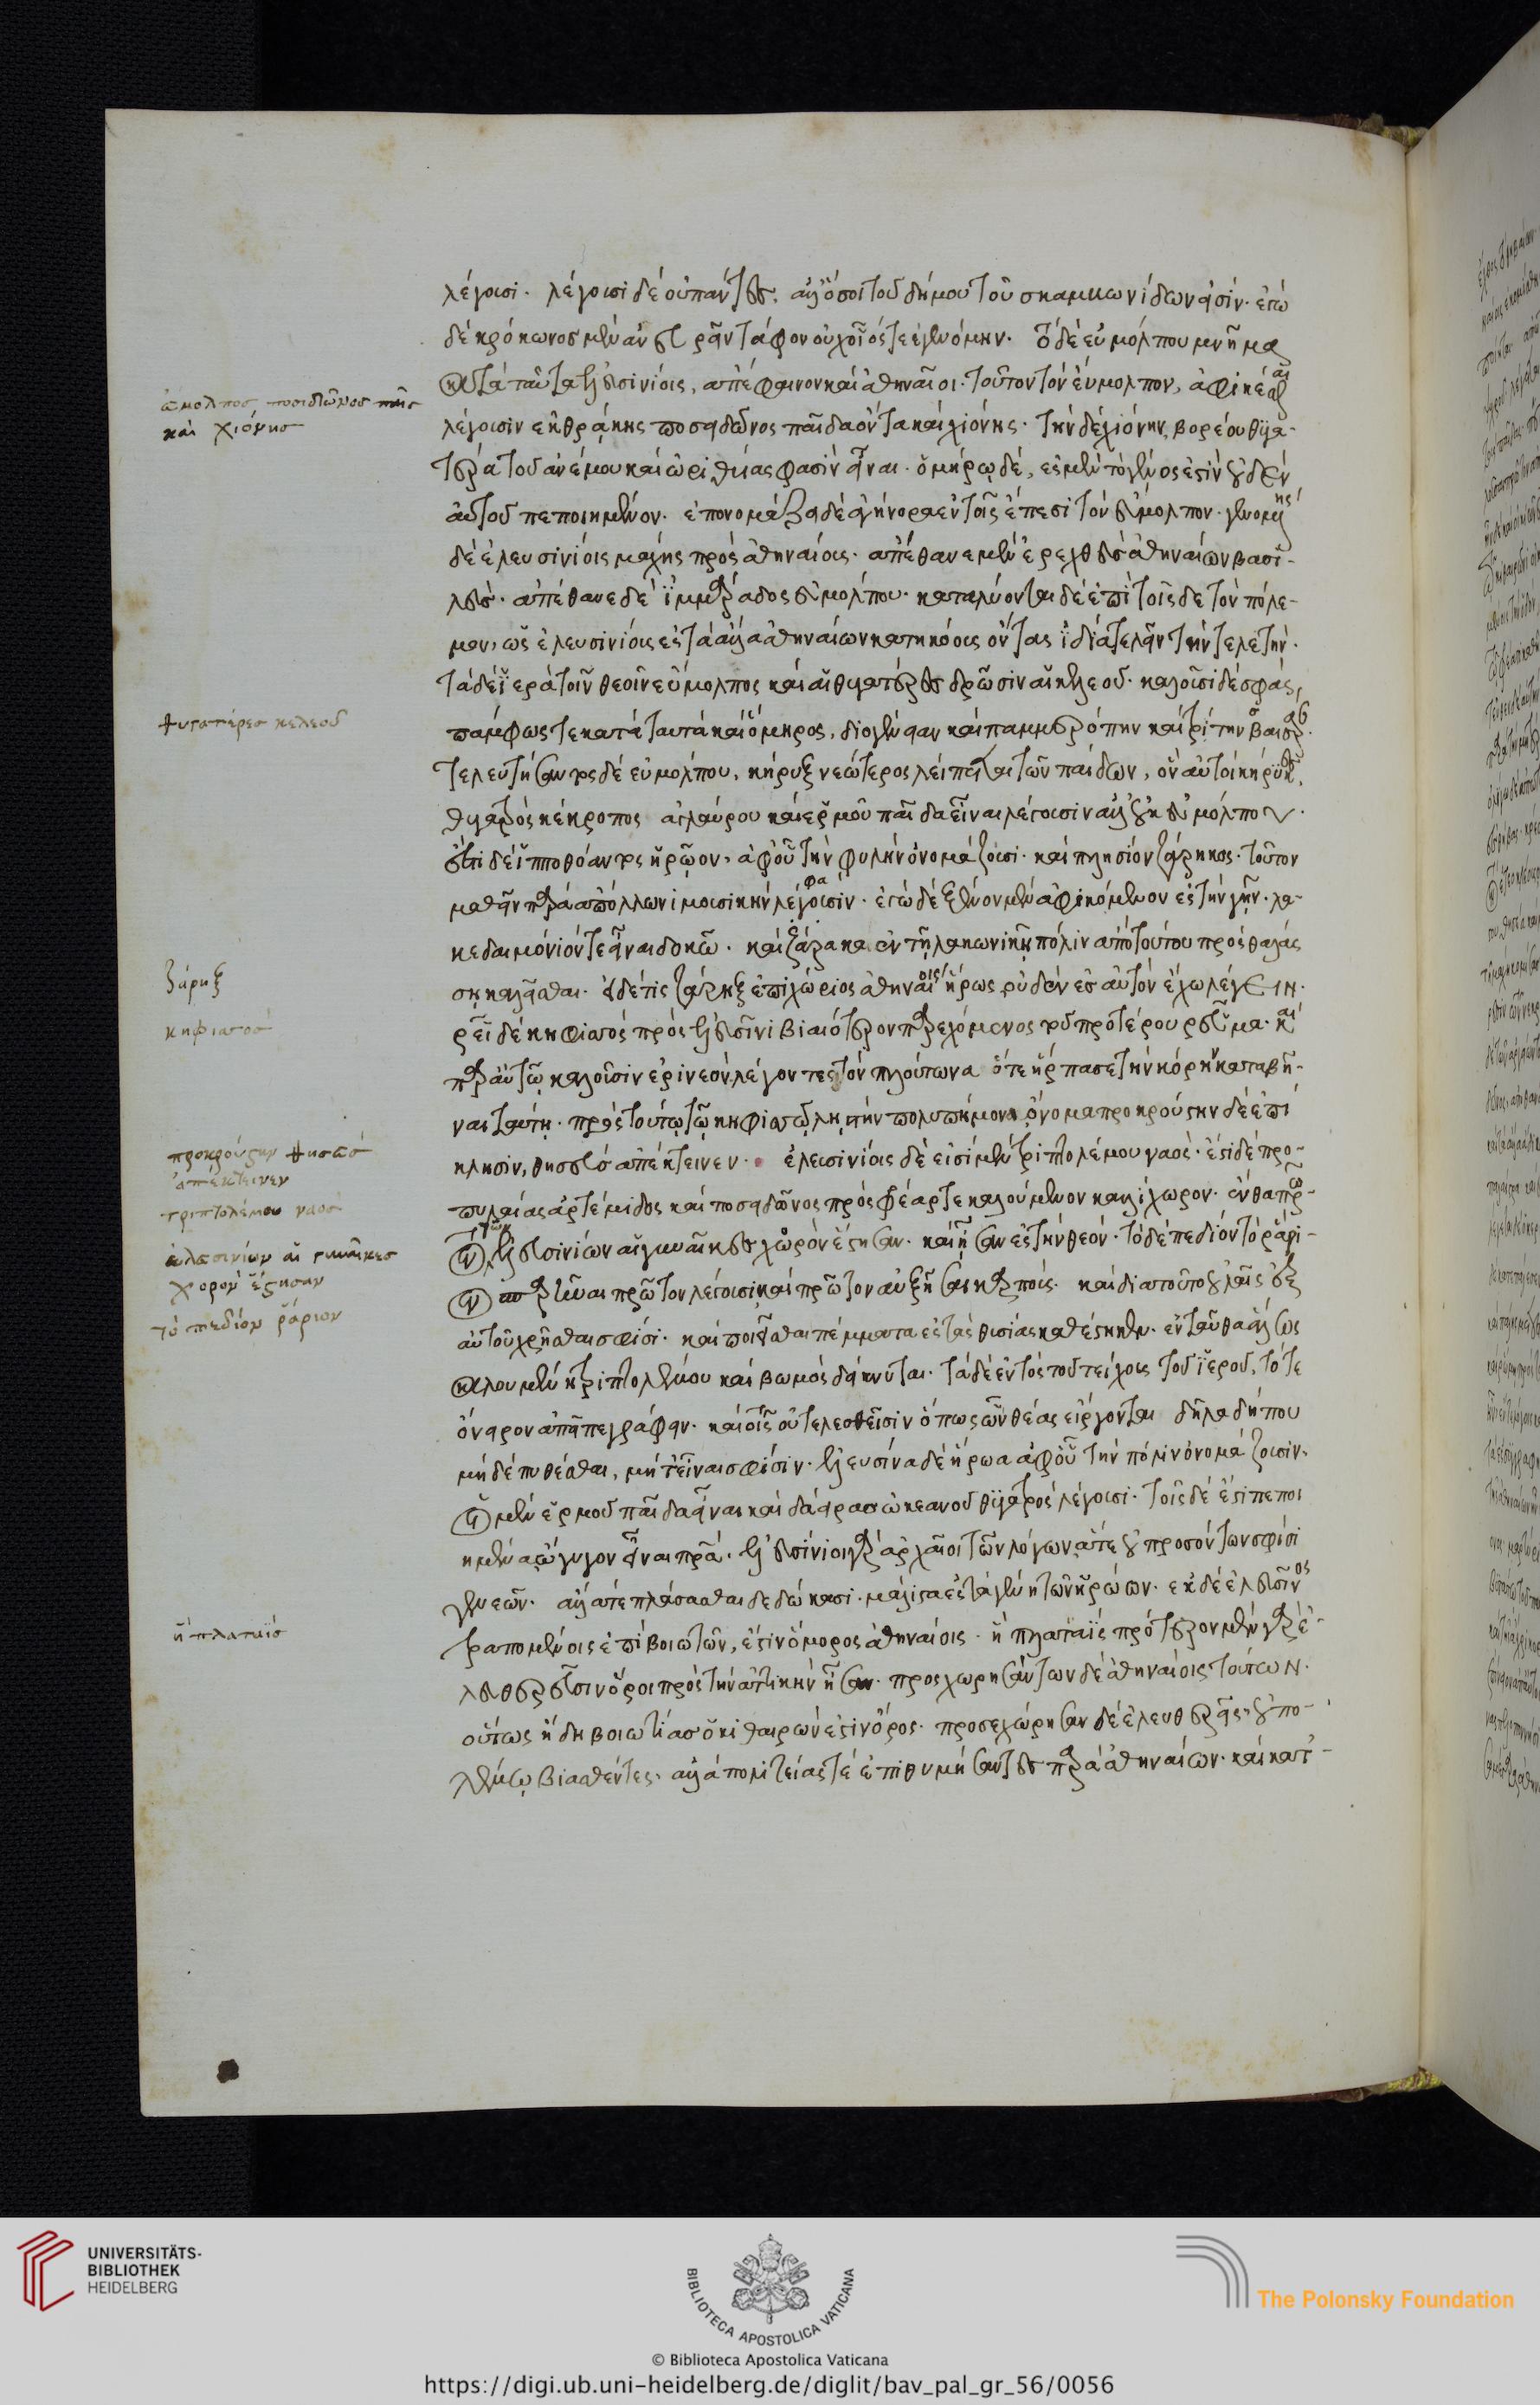 λέγουσι. λέγουσι δὲ οὐ πάντες. ἀλλ' ὅσοι τοῦ δήμου τοῦ σκαμωνιδῶν εἰσίν. ἐγὼ
δὲ κρόκωνος μὲν ἀνευρεῖν τάφον οὐχ οἷός τε ἐγενόμην. τὸ δὲ εὐμόλπου μνῆμα
κατὰ ταῦτα ἐλευσινίοις, ἀπέφαινον καὶ ἀθηναῖοι. τοῦτον τὸν εὔμολπον, ἀφικέσθαι
λέγουσιν ἐκ θράκης ποσειδῶνος παῖδα ὄντα καὶ χιόνης. τὴν δὲ χιόνην, βορέου θυγα-
τέρα τοῦ ἀνέμου καὶ ὠρειθυίας φασὶν εἶναι. ὁμήρῳ δὲ, ἐς μὲν τὸ γένος ἐστὶν οὐδὲν
αὐτοῦ πεποιημένον. ἐπονομάζει δὲ ἀγήνορα ἐν τοῖς ἔπεσι τὸν εὔμολπον. γενομένης
δὲ ἐλευσινίοις μάχης πρὸς ἀθηναίους. ἀπέθανε μὲν ἐρεχθεὺς ἀθηναίων βασι-
λεύς. ἀπέθανε δὲ ἰμμάραδος εὐμόλπου. καταλύονται δὲ ἐπὶ τοῖσδε τὸν πόλε-
μον, ὡς ἐλευσινίους ἐς τὰ ἄλλα ἀθηναίων κατηκόους ὄντας ἰδίᾳ τελεῖν τὴν τελετήν.
τὰ δὲ ἱερὰ τοῖν θεοῖν εὔμολπος καὶ αἱ θυγατέρες δρῶσιν αἱ κελεοῦ. καλοῦσι δὲ σφᾶς,
πάμφως τε κατὰ ταυτὰ καὶ ὅμηρος, διογένειαν καὶ παμμερόπην καὶ τρίτην σαισάραν.
τελευτήσαντος δὲ εὐμόλπου, κήρυξ νεώτερος λείπεται τῶν παίδων, ὃν αὐτοὶ κήρυκες
θυγατρὸς κέκροπος ἀγλαύρου καὶ ἑρμοῦ παῖδα εἶναι λέγουσιν ἀλλ' οὐκ εὐμόλπου.
ἔστι δὲ ἱπποθόωντος ἡρῷον, ἀφ' οὗ τὴν φυλὴν ὀνομάζουσι. καὶ πλησίον ζάρηκος. τοῦτον
μαθεῖν παρὰ ἀπόλλωνι μουσικὴν λέγουσιν φα. ἐγὼ δὲ ξένον μὲν ἀφικόμενον ἐς τὴν γῆν. λα-
κεδαιμόνιόν τε εἶναι δοκῶ. καὶ ζάρακα ἐν τῇ λακωνικῇ πόλιν ἀπὸ τούτου πρὸς θαλάσ
σῃ καλεῖσθαι. εἰ δέ τις ζάρηξ ἐπιχώριος ἀθηναίοις ἥρως οὐδὲν ἐς αὐτὸν ἔχω λέγειν.
ῥεῖ δὲ κηφισὸς πρὸς ἐλευσῖνι βιαιότερον παρεχόμενος τοῦ προτέρου ῥεῦμα. καὶ
παρ' αὐτῷ καλοῦσιν ἐρινεὸν λέγοντες τὸν πλούτωνα ὅτε ἥρπασε τὴν κόρην καταβῆ-
ναι ταύτῃ. πρὸς τούτῳ τῷ κηφισῷ λῃστὴν πολυπήμονα ὄνομα προκρούστην δὲ ἐπί
κλησιν, θησεὺς ἀπέκτεινεν. ἐλευσινίοις δὲ εἰσὶ μὲν τριπτολέμου ναός. ἔστι δὲ προ-
πυλαίας ἀρτέμιδος καὶ ποσειδῶνος πρὸς φρέαρ τε καλούμενον καλλίχωρον. ἔνθα πρῶ
τον τῶν ἐλευσινίων αἱ γυναῖκες χωρὸν ἔστησαν. καὶ ᾖσαν ἐς τὴν θεόν. τὸ δὲ πεδίον τὸ ῥάρι-
ον σπαρῆναι πρῶτον λέγουσι καὶ πρῶτον αὐξῆσαι καρπούς. καὶ διὰ τοῦτο οὐλαῖς ἐξ
αὐτοῦ χρῆσθαι σφίσι. καὶ ποιεῖσθαι πέμματα ἐς τὰς θυσίας καθέστηκεν. ἐνταῦθα ἅλως
καλουμένη τριπτολέμου καὶ βωμὸς δείκνυται. τὰ δὲ ἐντὸς τοῦ τείχους τοῦ ἱεροῦ, τό τε
ὄνειρον ἀπεῖπε γράφειν. καὶ οἷς οὐ τελεσθεῖσιν ὁπόσων θέας εἴργονται δῆλα δήπου
μηδὲ πυθέσθαι, μὴ τεῖναι σφίσιν. ἐλευσῖνα δὲ ἥρωα ἀφ' οὗ τὴν πόλιν ὀνομάζουσιν.
οἱ μὲν ἑρμοῦ παῖδα εἶναι καὶ δαείρας ὠκεανοῦ θυγατρὸς λέγουσι. τοῖς δὲ ἐστὶ πεποι
ημένα ὤγυγον εἶναι πρᾶ. ἐλευσίνιοι γὰρ ἀρχαῖοι τῶν λόγων ἅτε οὐ προσόντων σφίσι
γενεῶν. ἄλλα τε πλάσασθαι δεδώκασι. μάλιστα ἐς τὰ γένη τῶν ἡρώων. ἐκ δὲ ἐλευσῖνος
τραπομένοις ἐπὶ βοιωτῶν, ἐστὶν ὅμορος ἀθηναίοις. ἡ πλαταιὶς πρότερον μὲν γὰρ ἐ-
λευθερεῦσιν ὅροι πρὸς τὴν ἀττικὴν ἦσαν. προσχωρησάντων δὲ ἀθηναίοις τούτων.
οὕτως ἤδη βοιωτίας ὁ κιθαιρών ἐστιν ὅρος. προσεχώρησαν δὲ ἐλευθερεῖς, οὐ πο-
λέμῳ βιασθέντες. ἀλλὰ πολιτείας τὲ ἐπιθυμήσαντες παρὰ ἀθηναίων. καὶ κατ' -
εὔμολπος ποσιδῶνος παῖς
καὶ χιόνης
θυγατέρες κελεοῦ
ζάρηξ
κηφισσός
προκρούστην θησεὺς
ἀπέκτεινεν
τριπτολέμου ναός
ἐλευσινίων αἱ γυναῖκες
χορὸν ἔστησαν
τὸ πεδίον ῥάριον
ἡ πλαταιίς
UNIVERSITÄTS-
BIBLIOTHEK
HEIDELBERG
BIBLIOTECA APOSTOLICA VATICANA
The Polonsky Foundation
© Biblioteca Apostolica Vaticana
https://digi.ub.uni-heidelberg.de/diglit/bav_pal_gr_56/0056